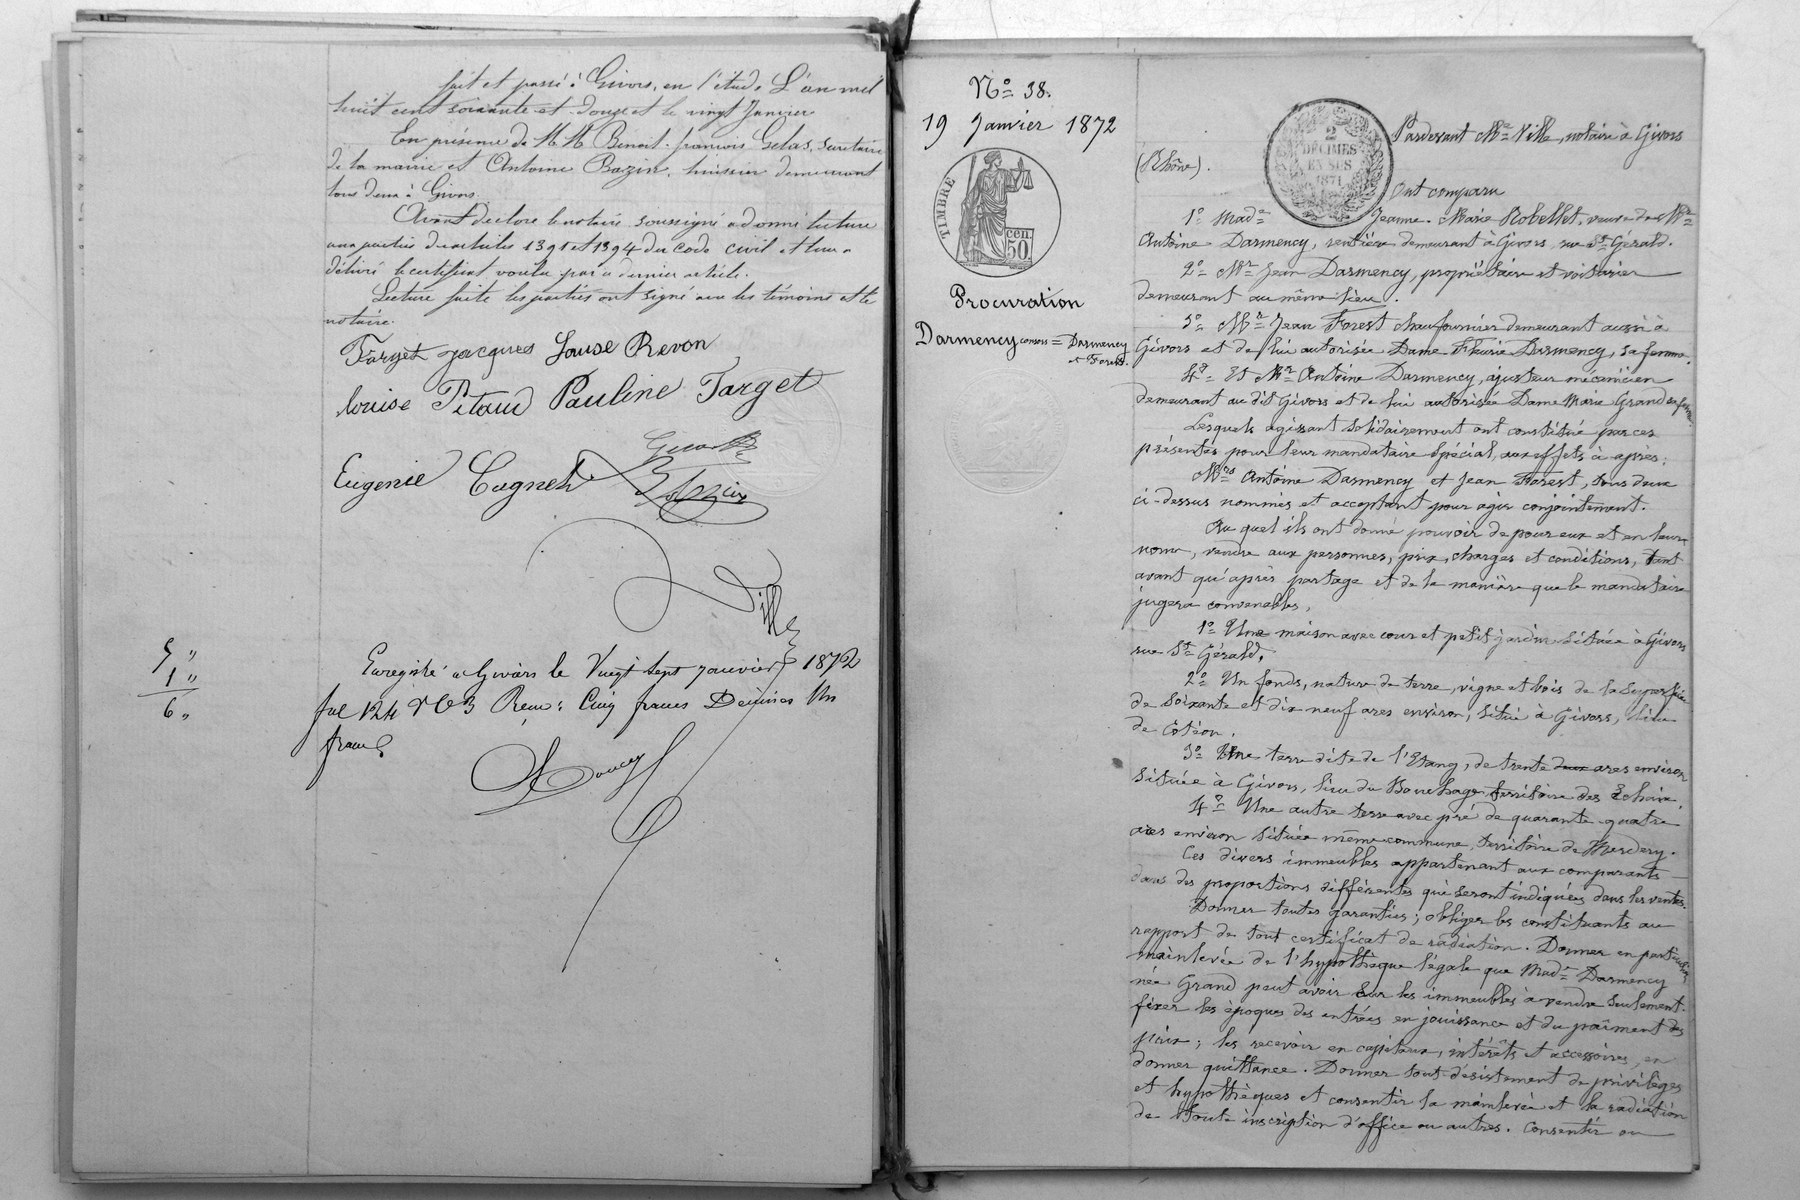 fait et passé à Givors, en l'étude, L'an mil
huit cent soixante et douze et le vingt Janvier
En présence de MM. Benoit-francois Gelas, secretaire
de la mairie et Antoine Bazin, huissier demeurant
tous deux à Givors.
Avant de clore le notaire soussigné a donné lecture
aux parties des articles 1391 et 1394 du Code civil et leur a
délivré le certificat voulu par ce dernier article.
Lecture faite les parties ont signé avec les témoins et le
notaire.
Target Jacques Louise Revon
louise Pitaud Pauline Target
Eugenie Cagnet
Bazin
Ville
5 "
1 "
6 "
Enregistré à Givors le Vingt sept janvier 1872
fol 124 V C 3 Reçu: Cinq francs Decimes Un
franc
No 38.
19 Janvier 1872
TIMBRE
50 cen.
Procuration
Darmency consors = Darmency
et Forest.
2
DÉCIMES
EN SUS
1871
Pardevant Me Ville, notaire à Givors
(Rhône).
Ont comparu
1o Made Jeanne-Marie Robellet, veuve de Mr
Antoine Darmency, rentière demeurant à Givors, rue St Gérald.
2o Mr Jean Darmency, propriétaire et voiturier
demeurant au même lieu.
3o Mr Jean Forest chaufournier demeurant aussi à
Givors et de lui autorisée Dame Fleurie Darmency, sa femme.
4o Et Mr Antoine Darmency, ajusteur mécanicien
demeurant au dit Givors et de lui autorisée Dame Marie Grand sa femme
Lesquels agissant solidairement ont constitué par ces
présentes pour leur mandataire spécial, aux effets ci-après:
Mrs Antoine Darmency et Jean Forest, tous deux
ci-dessus nommés et acceptant pour agir conjointement.
Au quel ils ont donné pouvoir de pour eux et en leurs
noms, vendre aux personnes, prix, charges et conditions, tant
avant qu'après partage et de la manière que le mandataire
jugera convenables,
1o Une maison avec cour et petit jardin située à Givors
rue St Gérald,
2o Un fonds, nature de terre, vigne et bois de la superficie
de soixante et dix neuf ares environ, situé à Givors, lieu
de Cotéon,
3o Une terre dite de l'Etang, de trente deux ares environ
située à Givors, lieu du Bouchage, territoire des
4o Une autre terre avec pré de quarante quatre
ares environ située même commune, territoire de
Ces divers immeubles appartenant aux comparants
dans des proportions différentes qui seront indiquées dans les ventes.
Donner toutes garanties; obliger les constituants au
rapport de tout certificat de radiation. Donner en particulier
mainlevée de l'hypothèque légale que Made Darmency
née Grand peut avoir sur les immeubles à vendre seulement.
fixer les époques des entrées en jouissance et du paîment des
prix; les recevoir en capitaux, intérêts et accessoires, en
donner quittance. Donner tout désistement de privilèges
et hypothèques et consentir la mainlevée et la radiation
de toute inscription d'office ou autres. Consentir ou